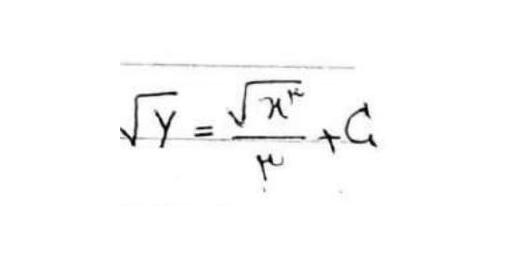 √y = √(x^۳) / ۳ + C